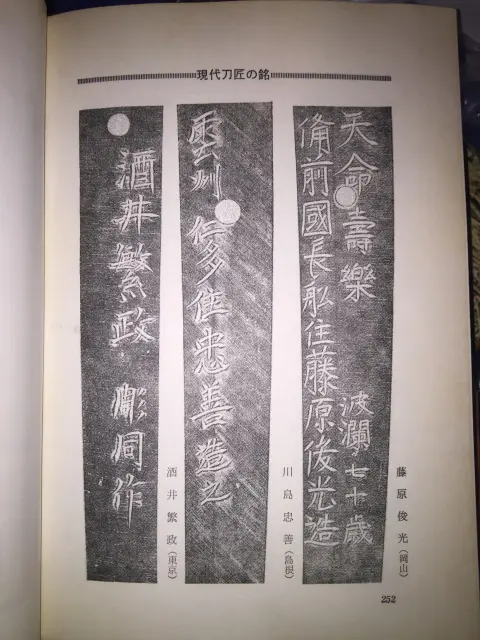 現代刀匠の銘
天命壽樂 波瀾七十歳
備前國長舩住藤原俊光造
藤原俊光（岡山）
雲州仁多住忠善造之
川島忠善（島根）
酒井繁政 彫同作
酒井繁政（東京）
252